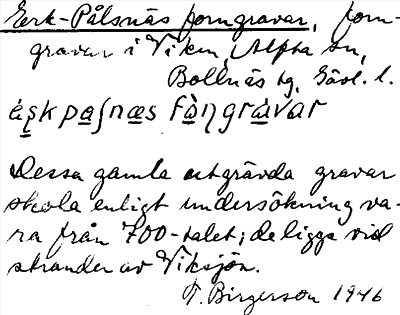 Erk-Pålsnäs forngravar, forn-
gravar i Viken, Alfta sn,
Bollnäs tg, Gävl. l.
æskpasnæs fòŋgràvar
Dessa gamla utgrävda gravar
skola enligt undersökning va-
ra från 700-talet; de ligga vid
stranden av Viksjön.
T. Birgerson 1946